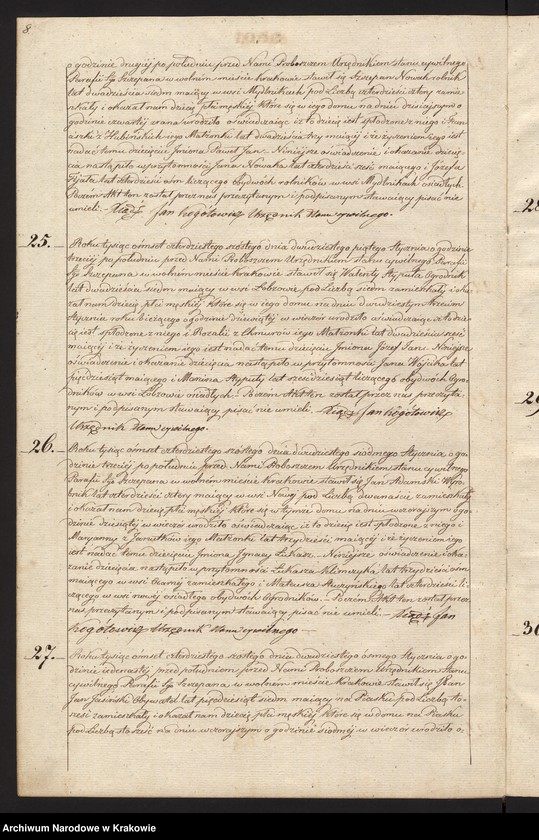 8
o godzinie drugiéj po południu przed Nami Proboszczem Urzędnikiem stanu cywilnego
Parafii Sgo Szczepana w wolném mieście Krakowie stawił się Szczepan Nowak rolnik
lat dwadzieścia siedm maiący w wsi Mydlnikach pod Liczbą czterdzieści cztery zamie
szkały i okazał nam dziecię płci męskiéj które się w iego domu na dniu dzisiajszym o
godzinie czwartéj zrana urodziło oświadczaiąc iż to dziecię iest spłodzone z niego i Fran
ciszki z iego Małżonki lat dwadzieścia trzy maiącéj i iż życzeniem iego iest
nadać temu dziecięciu Imiona Paweł Jan. Niniejsze oświadczenie i okazanie dziecię
cia nastąpiło w przytomności Jana Nowaka lat czterdzieści sześć maiącego i Józefa
lat czterdzieści ośm liczącego obydwóch rolników w wsi Mydlnikach osiadłych.
Poczém Akt ten został przez nas przeczytanym i podpisanym stawaiący pisać nie
umieli. Xiądz Jan Rogótowicz Urzędnik Stanu cywilnego.
25. Roku tysiąc ośmset czterdziestego szóstego dnia dwudziestego piątego Stycznia o godzinie
trzeciéj po południu przed Nami Proboszczem Urzędnikiem stanu cywilnego Parafii
Sgo Szczepana w wolném mieście Krakowie stawił się Walenty Stypuła Ogrodnik
lat dwadzieścia siedm maiący w wsi Łobzowie pod Liczbą siedm zamieszkały i oka
zał nam dziecię płci męskiéj które się w iego domu na dniu dwudziestym trzecim
Stycznia roku bieżącego o godzinie dziewiątéj w wieczór urodziło oświadczaiąc iż to dzie
cię iest spłodzone z niego i Rozalii z Chmurów iego Małżonki lat dwadzieścia sześć
maiącéj i iż życzeniem iego iest nadać temu dziecięciu Imiona Józef Jan. Niniejsze
oświadczenie i okazanie dziecięcia nastąpiło w przytomności Jana Wójcika lat
pięćdziesiąt maiącego i Marcina Stypuły lat sześćdziesiąt liczącego obydwóch Ogro
dników w wsi Łobzowie osiadłych. Poczém Akt ten został przez nas przeczyta
nym i podpisanym stawaiący pisać nie umieli. Xiądz Jan Rogótowicz
Urzędnik Stanu cywilnego.
26. Roku tysiąc ośmset czterdziestego szóstego dnia dwudziestego siódmego Stycznia o go
dzinie trzeciéj po południu przed Nami Proboszczem Urzędnikiem stanu cywilnego
Parafii Sgo Szczepana w wolném mieście Krakowie stawił się Jan Adamski Wyro
bnik lat czterdzieści cztery maiący w wsi Nowéj pod Liczbą dwanaście zamieszkały
i okazał nam dziecię płci męskiéj które się w tymże domu na dniu wczorajszym o go
dzinie dziesiątéj w wieczór urodziło oświadczaiąc iż to dziecię iest spłodzone z niego i
Maryanny z iego Małżonki lat trzydzieści maiącéj i iż życzeniem iego
iest nadać temu dziecięciu Imiona Ignacy Łukasz. Niniejsze oświadczenie i oka
zanie dziecięcia nastąpiło w przytomności Łukasza Klimczyka lat trzydzieści ośm
maiącego w wsi Czarnéj zamieszkałego i Mateusza lat czterdzieści li
czącego w wsi nowéj osiadłego obydwóch Ogrodników. Poczém Akt ten został przez
nas przeczytanym i podpisanym stawaiący pisać nie umieli. Xiądz Jan
Rogótowicz Urzędnik Stanu cywilnego
27. Roku tysiąc ośmset czterdziestego szóstego dnia dwudziestego ósmego Stycznia o go
dzinie iedenastéj przed południem przed Nami Proboszczem Urzędnikiem Stanu
cywilnego Parafii Sgo Szczepana w wolném mieście Krakowie stawił się Pan
Jan Jasiński Obywatel lat pięćdziesiąt siedm maiący na Piasku pod Liczbą sto
sześć zamieszkały i okazał nam dziecię płci męskiéj które się w domu na Piasku
pod Liczbą sto sześć na dniu wczorajszym o godzinie siódméj w wieczór urodziło o:
28
29
30
Archiwum Narodowe w Krakowie